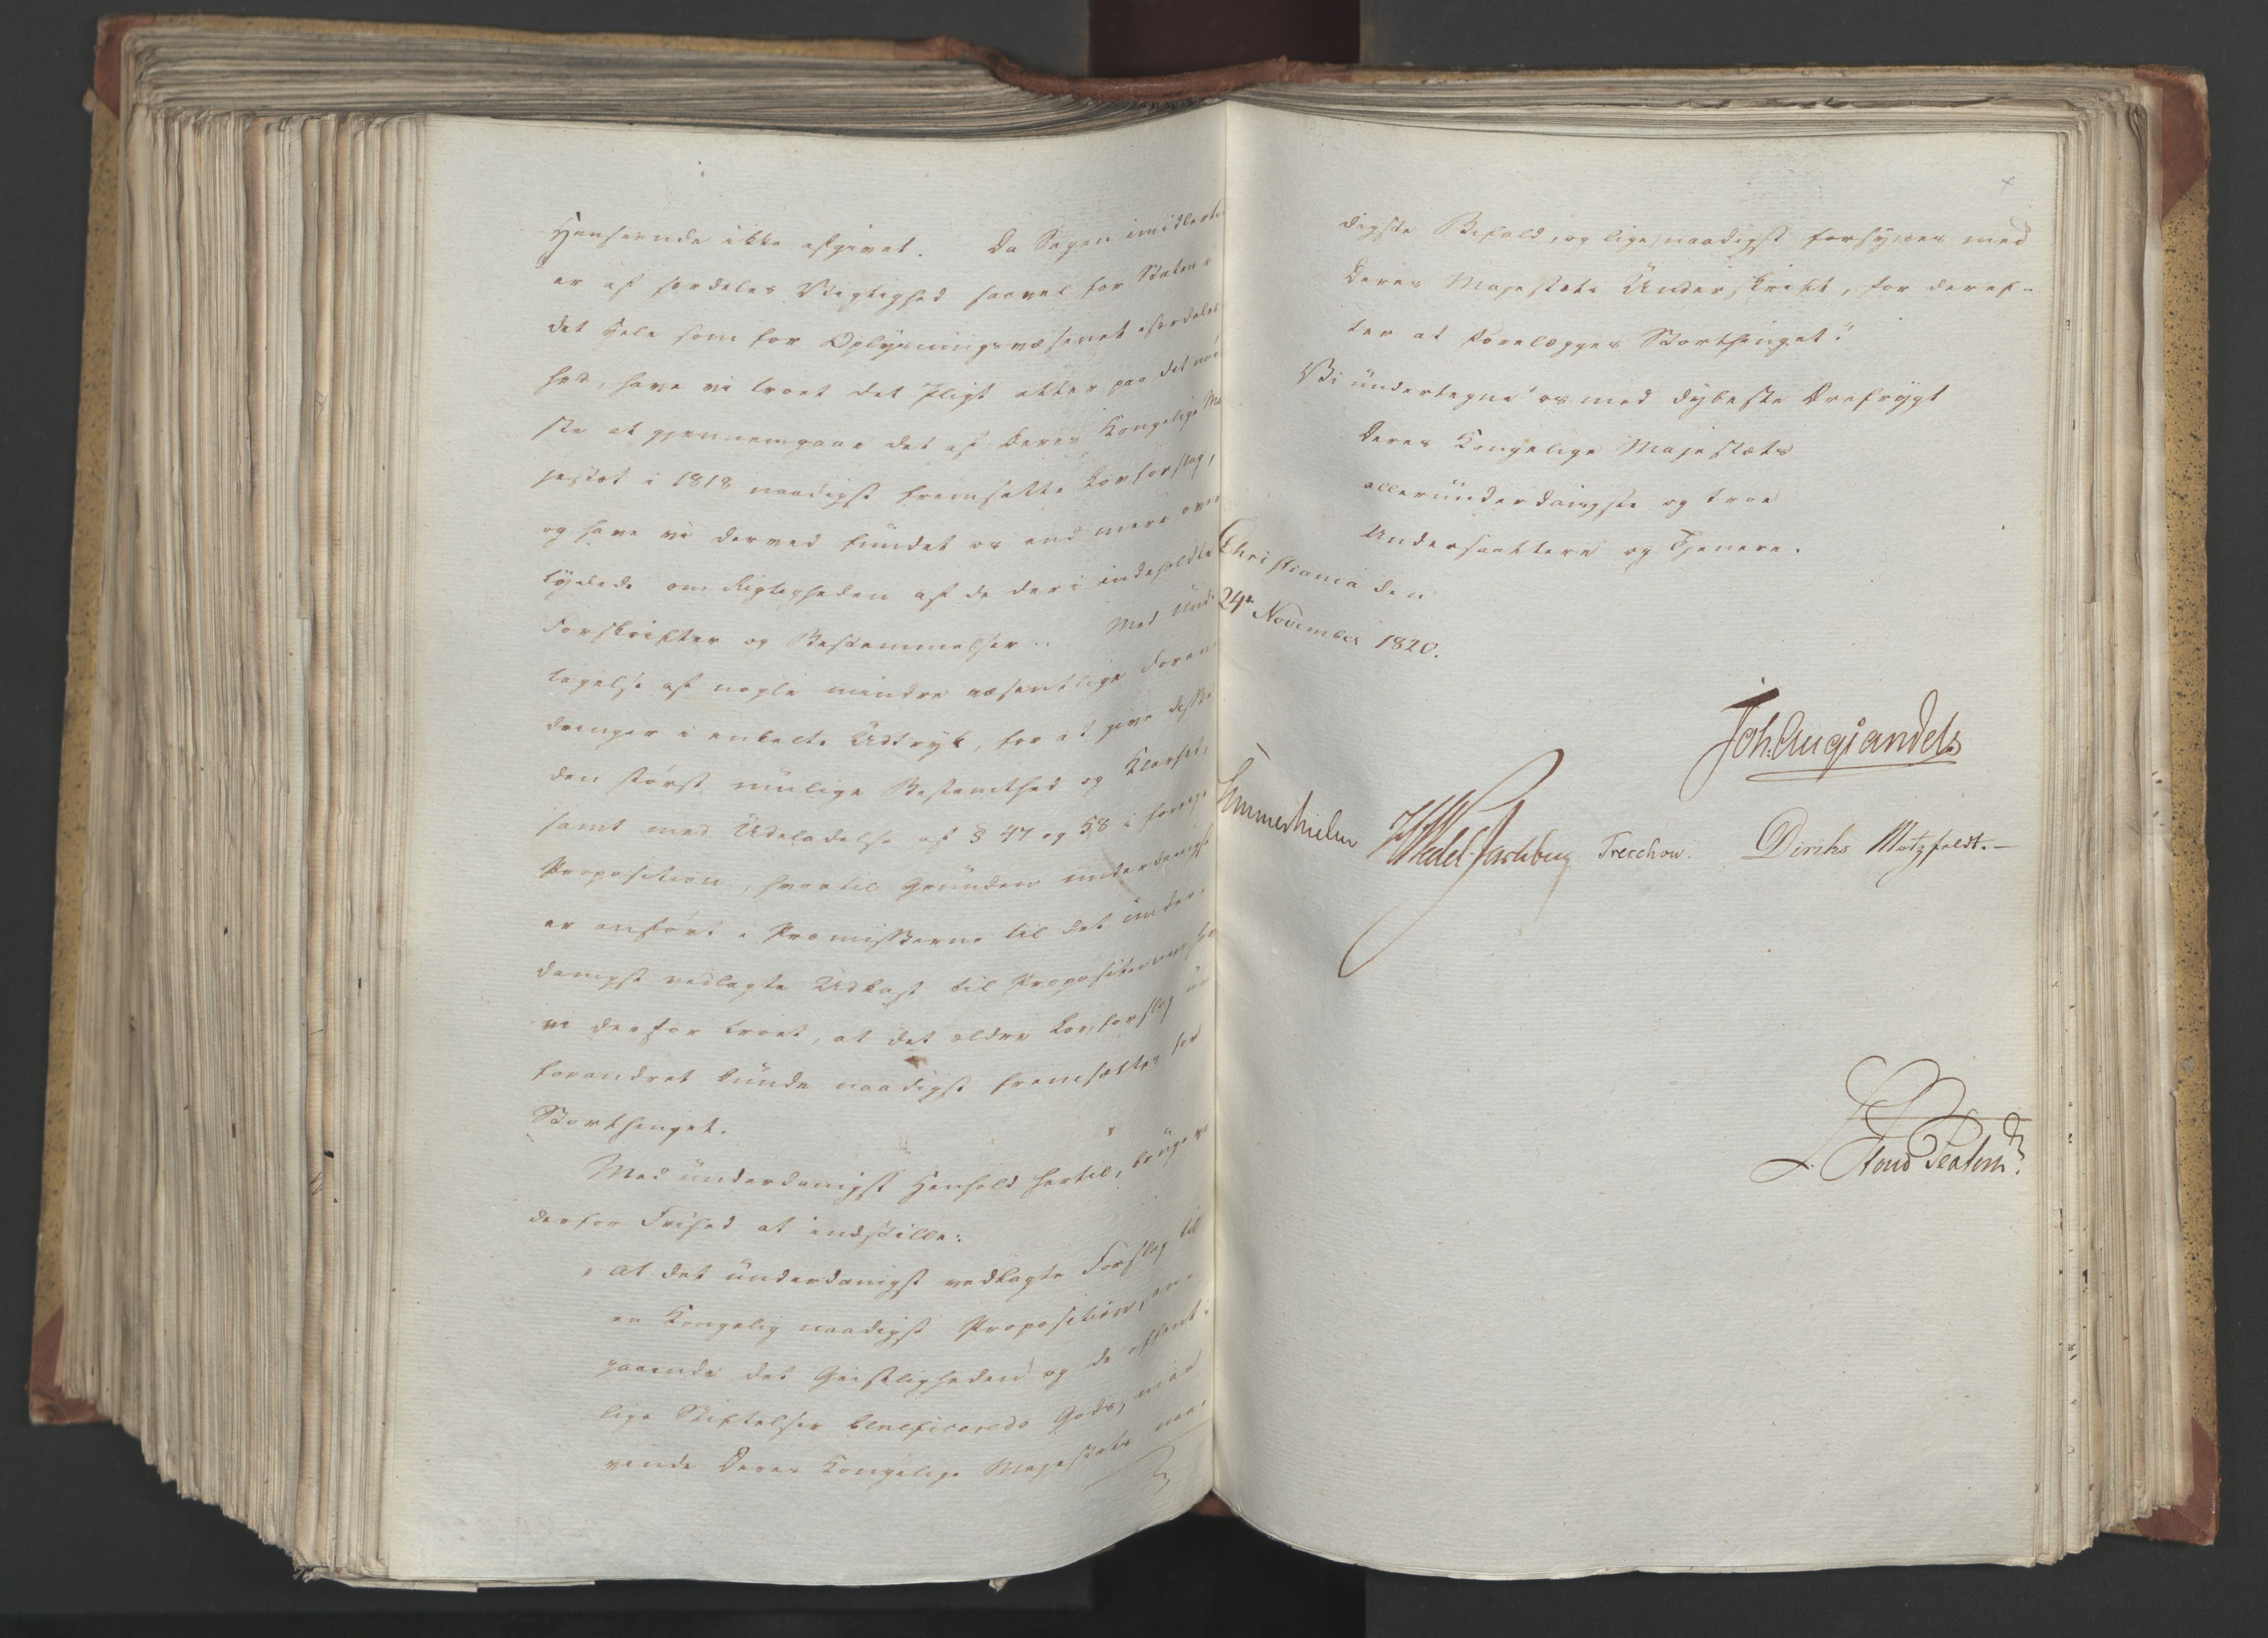 Henseende ikke afgivet. Da Sagen imidlerti
er af særdeles Vigtighed saavel for Staten i
det Hele som for Oplysningsvæsenet isærdeles
hed, have vi troet det Pligt atter paa det nøi
ste at gjennemgaae det af Deres Kongelige Ma
jestæt i 1818 naadigst fremsatte Lovforslag,
og have vi derved fundet os end mere over
tydede om Rigtigheden af de deri indeholdte
Forskrifter og Bestemmelser. Med Und
tagelse af nogle mindre væsentlige Foran
dringer i enkelte Udtryk, for at give disse
den størst mulige Bestemthed og Klarhed,
samt med Udeladelse af § 47 og 58 i forrige
Proposition, hvortil Grunden underdanigst
er anført i Præmisserne til det under
danigst vedlagte Udkast til Proposition, have
vi derfor troet, at det ældre Lovforslag u
forandret kunde naadigst fremsættes for
Storthinget.
Med underdanigst Henhold hertil, bruge vi
derfor Frihed at indstille:
"At det underdanigst vedlagte Forslag til
en Kongelig naadigst Proposition, an-
gaaende det Geistligheden og de offent-
lige Stiftelser beneficerede Gods, maa
vinde Deres Kongelige Majestæts naa-
digste Bifald, og lige naadigst forsynes med
Deres Majestæts Underskrift, for deref-
ter at forelægges Storthinget."
Vi undertegne os med dybeste Ærefrygt
Deres Kongelige Majestæts
allerunderdanigste og troe
Undersaattere og Tjenere.
Christiania den
24de November 1820.
Joh. Aug. Sandels
Sommerhielm HWedel Jarlsberg Treschow. Diriks Motzfeldt.